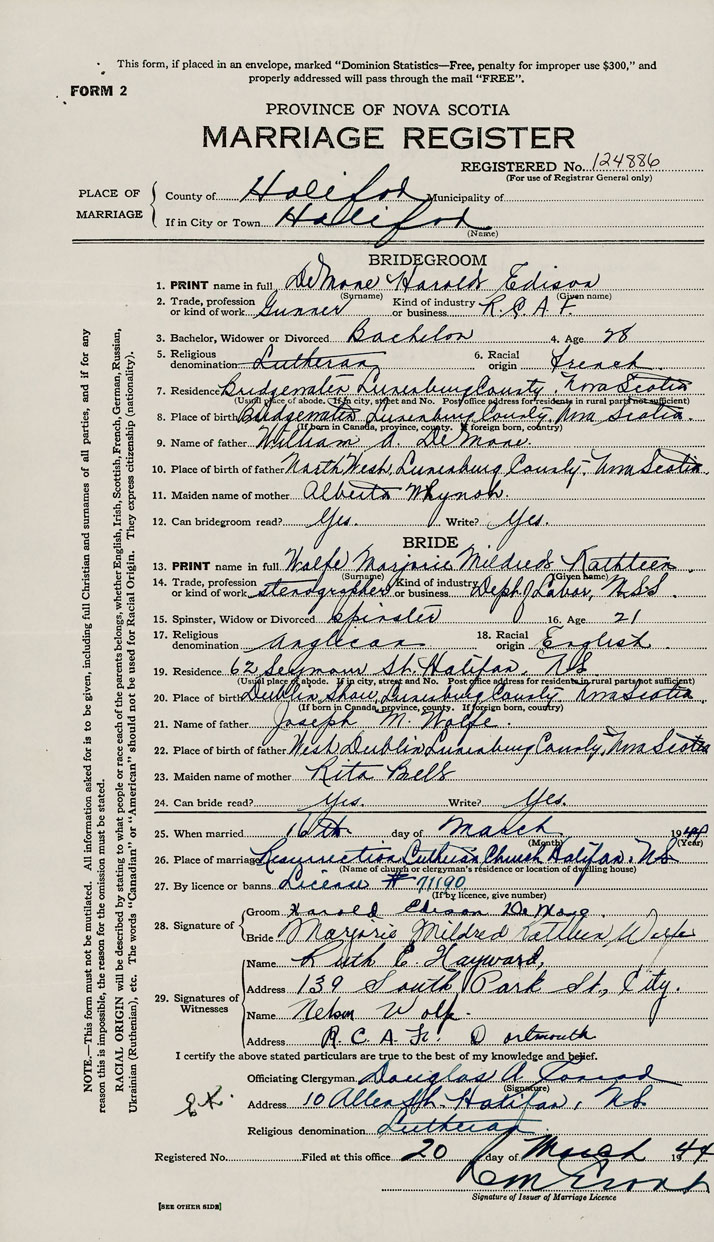 This form, if placed in an envelope, marked “Dominion Statistics—Free, penalty for improper use $300,” and
properly addressed will pass through the mail “FREE”.
FORM 2
PROVINCE OF NOVA SCOTIA
MARRIAGE REGISTER
REGISTERED No. 124886
(For use of Registrar General only)
PLACE OF MARRIAGE
County of Halifax Municipality of
If in City or Town Halifax
(Name)
BRIDEGROOM
1. PRINT name in full DeMone Harold Edison
(Surname) (Given name)
2. Trade, profession or kind of work Gunner Kind of industry or business R.C.A.F.
3. Bachelor, Widower or Divorced Bachelor 4. Age 28
5. Religious denomination Lutheran 6. Racial origin French
7. Residence Bridgewater Lunenburg County, Nova Scotia
(Usual place of abode. If in city, street and No. Post office address for residents in rural parts not sufficient)
8. Place of birth Bridgewater, Lunenburg County, Nova Scotia.
(If born in Canada, province, county. If foreign born, country)
9. Name of father William A. DeMone.
10. Place of birth of father North West, Lunenburg County, Nova Scotia.
11. Maiden name of mother Alberta Whynot.
12. Can bridegroom read? Yes. Write? Yes.
BRIDE
13. PRINT name in full Wolfe Marjorie Mildred Kathleen
(Surname) (Given name)
14. Trade, profession or kind of work stenographer Kind of industry or business Dept of Labor, N.S.S.
15. Spinster, Widow or Divorced Spinster 16. Age 21
17. Religious denomination Anglican 18. Racial origin English.
19. Residence 62 Seymour St. Halifax, N.S.
(Usual place of abode. If in city, street and No. Post office address for residents in rural parts not sufficient)
20. Place of birth Dublin Shore, Lunenburg County Nova Scotia.
(If born in Canada, province, county. If foreign born, country)
21. Name of father Joseph M. Wolfe.
22. Place of birth of father West Dublin Lunenburg County, Nova Scotia
23. Maiden name of mother Rita Bell
24. Can bride read? Yes. Write? Yes.
25. When married 16th day of March 1944
(Month) (Year)
26. Place of marriage Resurrection Lutheran Church Halifax, N.S.
(Name of church or clergyman's residence or location of dwelling house)
27. By licence or banns License # 71190
(If by licence, give number)
28. Signature of
Groom Harold Edison DeMone.
Bride Marjorie Mildred Kathleen Wolfe
29. Signatures of Witnesses
Name Ruth E. Hayward,
Address 139 South Park St., City.
Name Nelson Wolfe.
Address R.C.A.F. Dartmouth
I certify the above stated particulars are true to the best of my knowledge and belief.
Officiating Clergyman Douglas A. Conrad
(Signature)
Address 10 Allen St. Halifax, N.S.
Religious denomination Lutheran
Registered No. Filed at this office 20 day of March 1944
Signature of Issuer of Marriage Licence
[SEE OTHER SIDE]
NOTE.—This form must not be mutilated. All information asked for is to be given, including full Christian and surnames of all parties, and if for any
reason this is impossible, the reason for the omission must be stated.
RACIAL ORIGIN will be described by stating to what people or race each of the parents belongs, whether English, Irish, Scottish, French, German, Russian,
Ukrainian (Ruthenian), etc. The words “Canadian” or “American” should not be used for Racial Origin. They express citizenship (nationality).